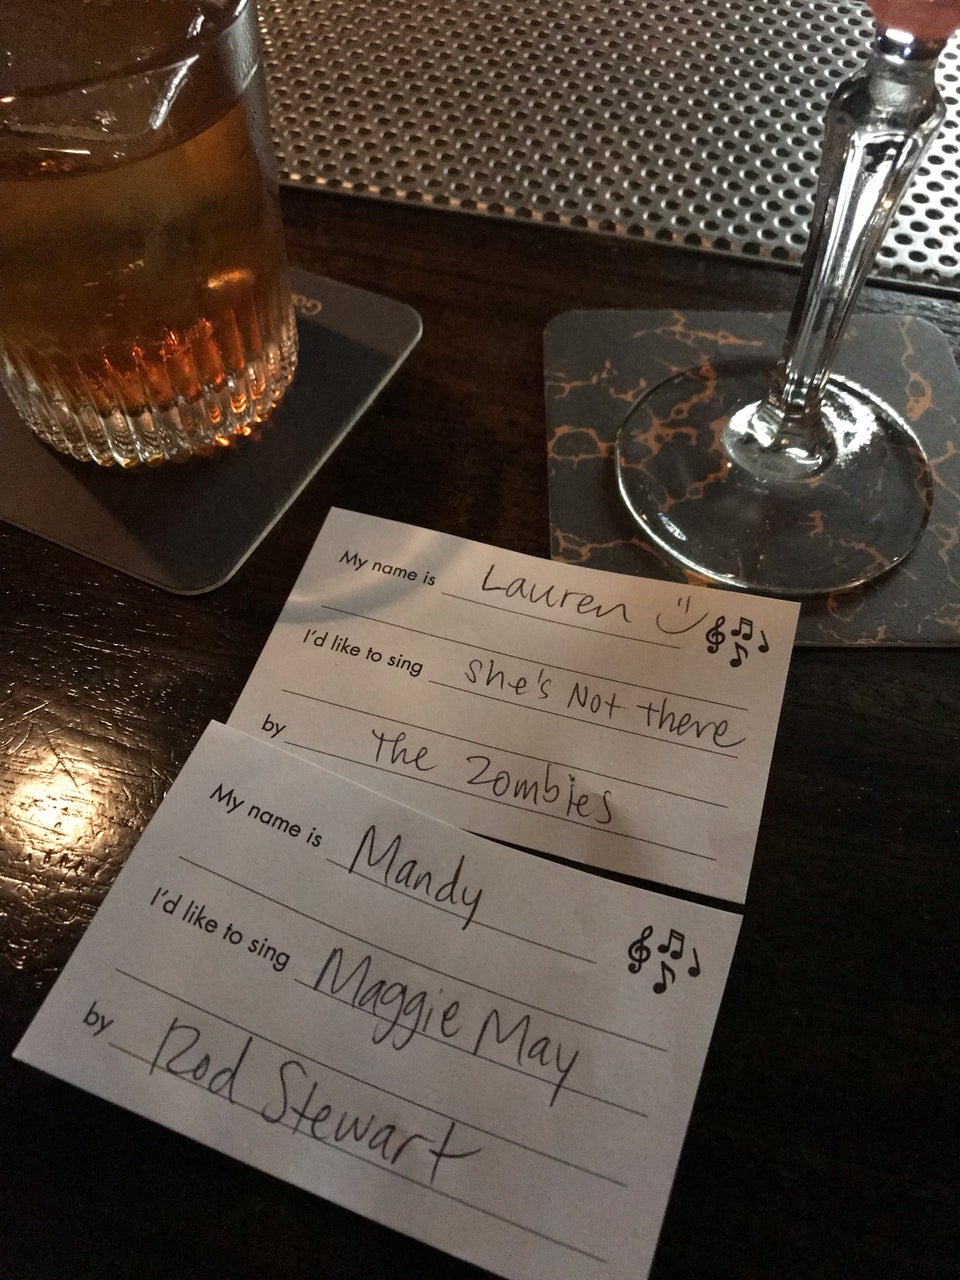 My name is Lauren
I'd like to sing She's Not there
by The Zombies
My name is Mandy
I'd like to sing Maggie May
by Rod Stewart